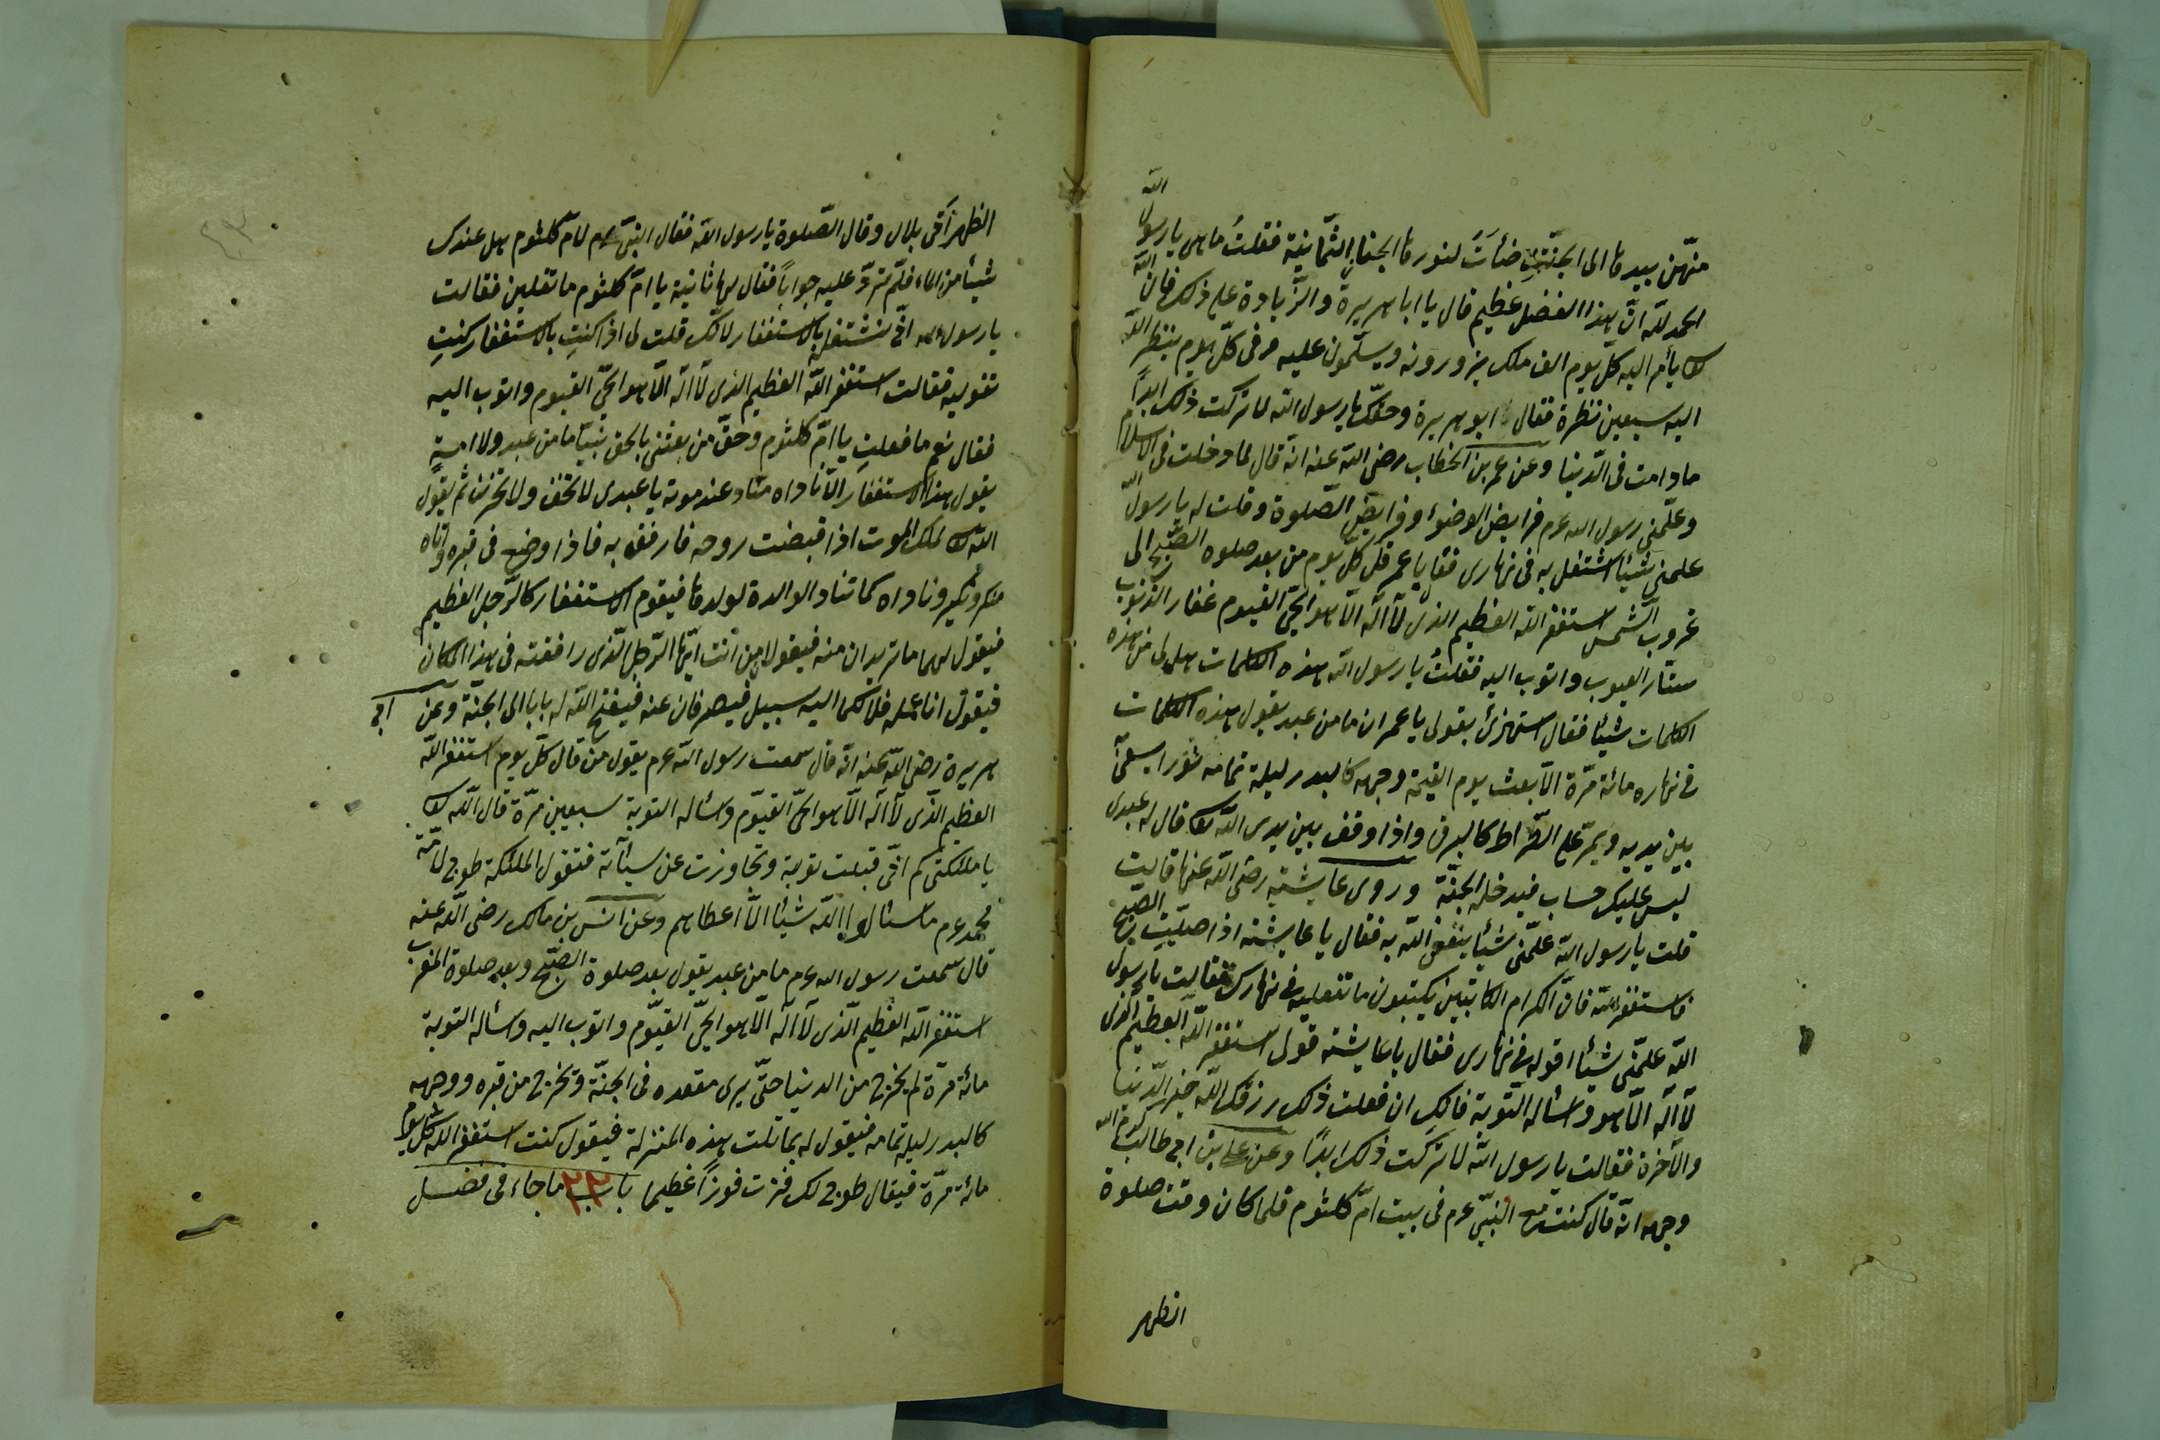 منهن بيدها الى الجنة ضأت لنورها الجنان الثمانية فقلت ما هى يا رسول الله
الحمد لله ان هذا الفضل عظيم قال يا ابا هريرة والزيادة على ذلك فان الله
يأمر اليه كل يوم الف ملك يزورونه ويسلمون عليه وفى كل يوم ينظر الله
اليه سبعين نظرة فقال ابو هريرة وحقك يا رسول الله لا تركت ذلك ابدا
ما دامت فى الدنيا وعن عمر بن الخطاب رضى الله عنه انه قال لما دخلت فى الاسلام
وعلمنى رسول الله عم فرايض الوضوء وفرايض الصلوة وقلت له يا رسول الله
علمنى شيئا اشتغل به فى نهارى فقال يا عمر قل كل يوم من بعد صلوه الصبح الى
غروب الشمس استغفر الله العظيم الذى لا اله الا هو الحى القيوم غفار الذنوب
ستار العيوب واتوب اليه فقلت يا رسول الله هذه الكلمات هل لى من هذه
الكلمات شيئا فقال استهزئ بقولى يا عمر ان ما من عبد يقول هذه الكلمات
فى نهاره مائة مرة الا بعث يوم القيمة وجهه كالبدر ليلة تمامه نورا يسعى
بين يديه ويمر على الصراط كالبرق واذا وقف بين يدى الله تعا قال له عبدى
ليس عليك حساب فيدخله الجنة وروى عايشه رضى الله عنها قالت
قلت يا رسول الله علمنى شيئا ينفع الله به فقال يا عايشه اذا صليت الصبح
فاستغفر الله فان الكرام الكاتبين يكتبون ما تفعليه فى نهارك فقالت يا رسول
الله علمنى شيئا اقوله فى نهارى فقال يا عايشه قول استغفر الله العظيم الذى
لا اله الا هو واسئاله التوبة فانك ان فعلت ذلك رزقك الله خير الدنيا
والآخرة فقالت يا رسول الله لا تركت ذلك ابدا وعن على بن ابى طالب كرم الله
وجهه انه قال كنت مع النبى عم فى بيت ام كلثوم فلما كان وقت صلوة
الظهر
الظهر أتى بلال وقال الصلوة يا رسول الله فقال النبى عم لام كلثوم هل عندك
شيئا من الماء فلم ترد عليه جوابا فقال لها ثانية يا ام كلثوم ما تقلين فقالت
يا رسول الله انى نشتغل بالاستغفار لانك قلت لى اذا كنت بالاستغفار كنت
تقوليه فقالت استغفر الله العظيم الذى لا اله الا هو الحى القيوم واتوب اليه
فقال نعم ما فعلت يا ام كلثوم وحق من بعثنى بالحق نبيا ما من عبد ولا امة
يقول هذا الاستغفار الا ناداه مناد عند موته يا عبدى لا تخف ولا تحزن ثم يقول
الله تعا لملك الموت اذا قبضت روحه فارفق به فاذا وضع فى قبره واتاه
منكر ونكير وناداه كما تناد الوالدة لولدها فيقوم الاستغفار كالرجل العظيم
فيقول لهما ما تريدان منه فيقولا من انت ايها الرجل الذى رافقته فى هذا المكان
فيقول انا عمله فلا لكما اليه سبيل فيصرفان عنه فيفتح الله له بابا الى الجنة وعن ابى
هريرة رضى الله عنه انه قال سمعت رسول الله عم يقول من قال كل يوم استغفر الله
العظيم الذى لا اله الا هو الحى القيوم واسئاله التوبة سبعين مرة قال الله تعا
يا ملئكتى كم انى قبلت توبة وتجاوزت عن سيئآته فتقول الملئكة طوبى لامة
محمد عم ما سئالوا الله شيئا الا اعطاهم وعن انس بن مالك رضى الله عنه
قال سمعت رسول الله عم ما من عبد يقول بعد صلوة الصبح وبعد صلوة المغرب
استغفر الله العظيم الذى لا اله الا هو الحى القيوم واتوب اليه واسئاله التوبة
مائة مرة لم يخرج من الدنيا حتى يرى مقعده فى الجنة ويخرج من قبره ووجهه
كالبدر ليله تمامه فيقول له بما نلت هذه المنزلة فيقول كنت استغفر الله كل يوم
مائة مرة فيقال طوبى لك فزت فوزا عظيما باب ٢٣ ما جاء فى فضل